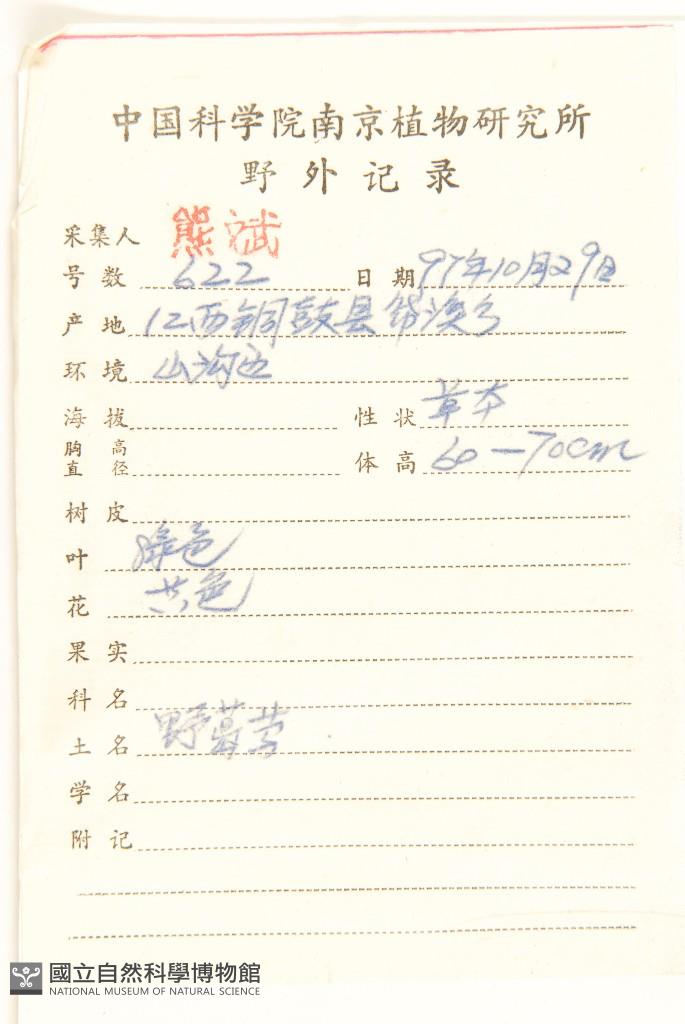 中国科学院南京植物研究所
野外记录
采集人 熊斌
号数 622 日期 97年10月29日
产地 江西铜鼓县 乡
环境 山沟边
海拔 性状 草本
胸高直径 体高 60—70cm
树皮
叶 绿色
花 黄色
果实
科名
土名 野
学名
附记
國立自然科學博物館
NATIONAL MUSEUM OF NATURAL SCIENCE